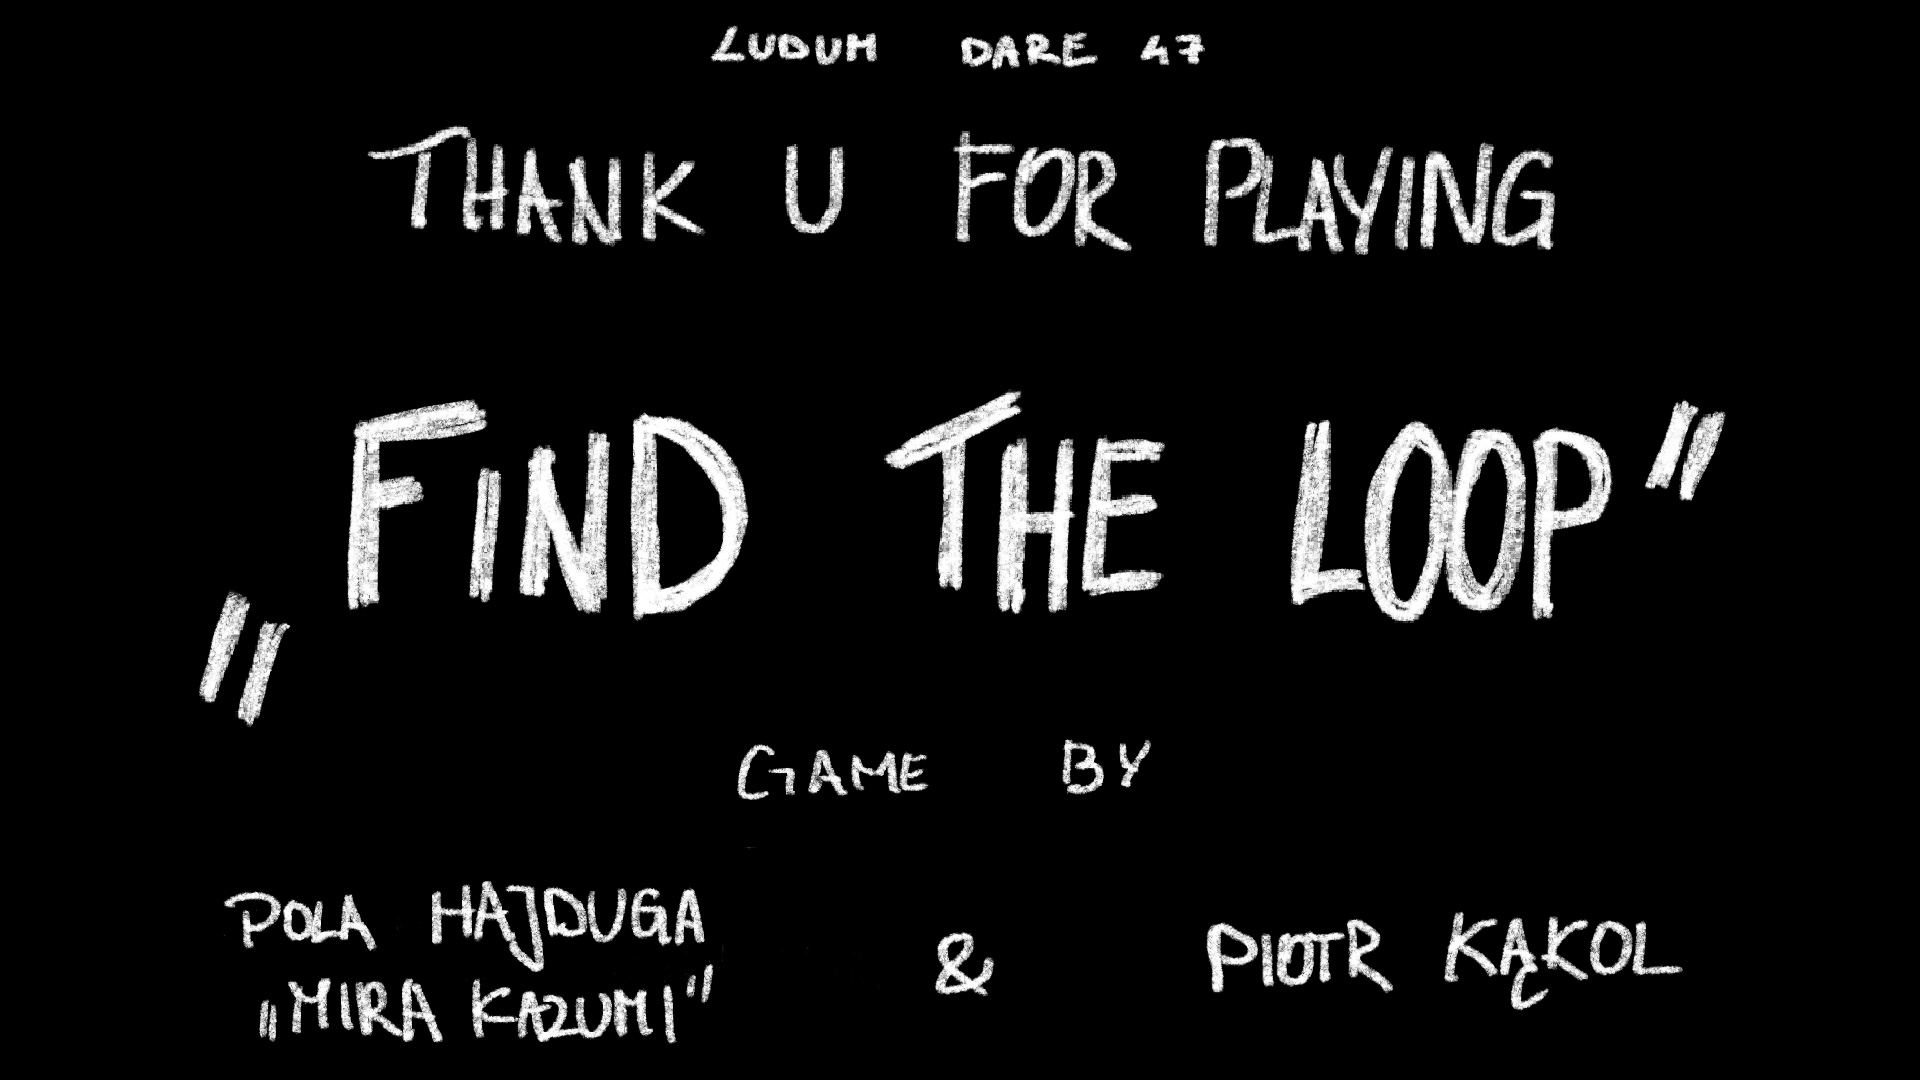 LUDUM DARE 47
THANK U FOR PLAYING
„FIND THE LOOP"
GAME BY
POLA HAJDUGA
„MIRA KAZUMI"
&
PIOTR KĄKOL